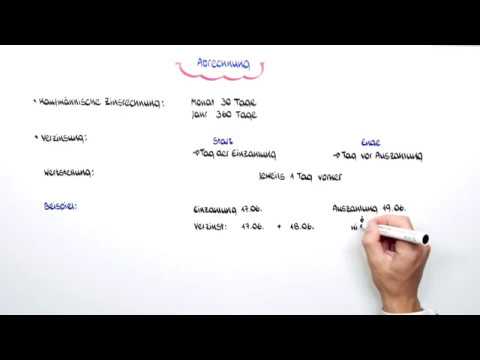 Abrechnung
• Kaufmännische Zinsrechnung: Monat 30 Tage
Jahr 360 Tage
• Verzinsung: Start Ende
→ Tag der Einzahlung → Tag vor Auszahlung
Wertstellung: jeweils 1 Tag vorher
Beispiel: Einzahlung 17.06. Auszahlung 19.06.
Verzinst: 17.06. + 18.06.